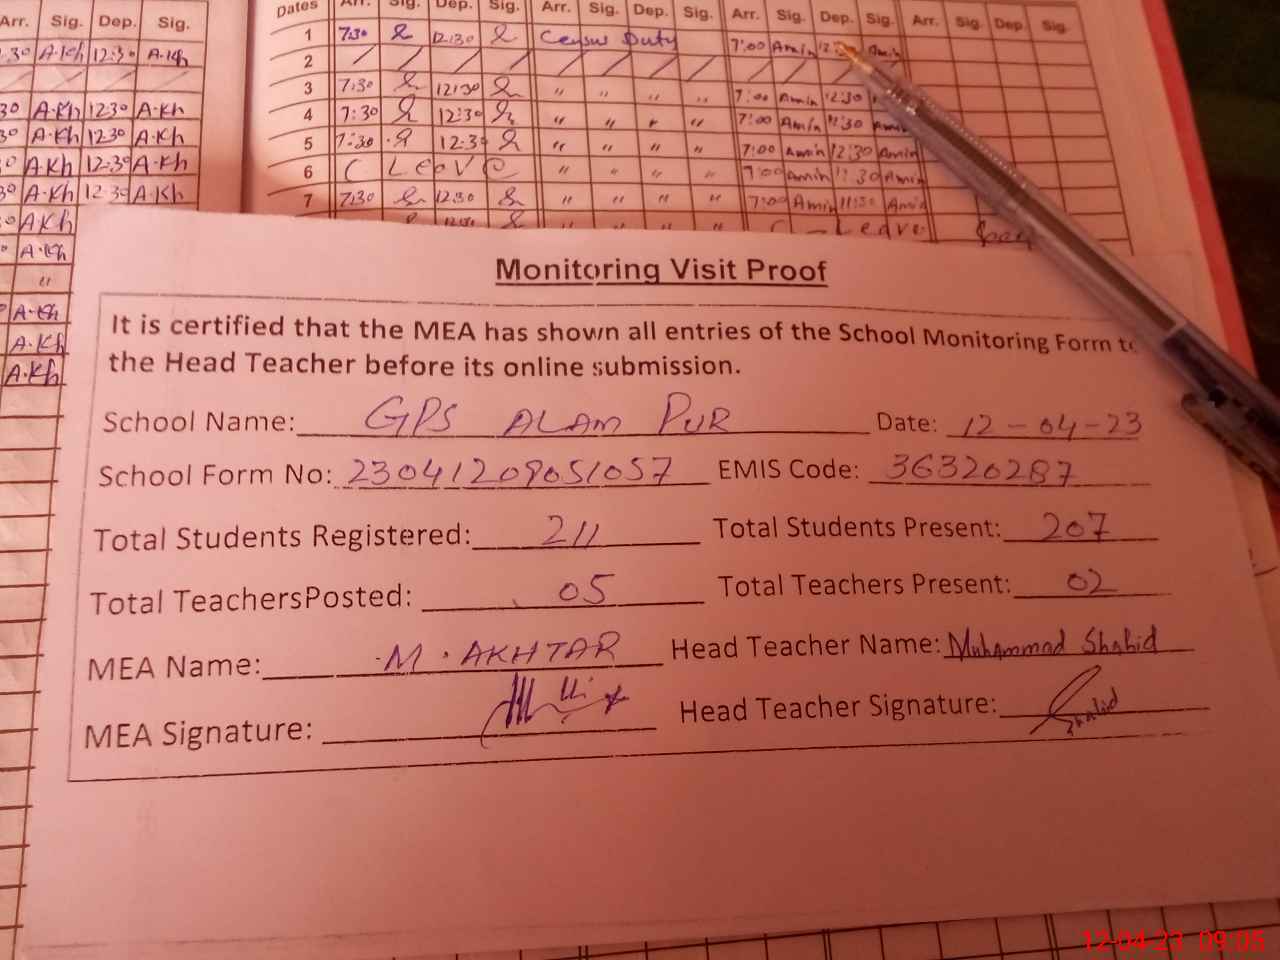 Arr. Sig. Dep. Sig.
:30 A.Kh 12:30 A.Kh
30 A.Kh 12:30 A.Kh
30 A.Kh 12:30 A.Kh
A.Kh 12:30 A.Kh
30 A.Kh 12:30 A.Kh
A.Kh
A.Kh
"
A.Kh
A.Kh
A.Kh
Dates Arr. Sig. Dep. Sig. Arr. Sig. Dep. Sig. Arr. Sig. Dep. Sig. Arr. Sig. Dep Sig.
1 7:30 12:30 Census Duty 7:00 Amin Amin
2 / / / / / / / / / / / /
3 7:30 12:30 " " " " 7:00 Amin 12:30
4 7:30 12:30 " " " " 7:00 Amin 11:30 Amin
5 7:30 12:30 " " " " 7:00 Amin 12:30 Amin
6 ( Leave " " " " 7:00 Amin 11:30 Amin
7 7:30 12:30 " " " " 7:00 Amin 11:30 Amin
12:30 " " " " ( - Leave
Monitoring Visit Proof
It is certified that the MEA has shown all entries of the School Monitoring Form to
the Head Teacher before its online submission.
School Name: GPS ALAM PUR Date: 12-04-23
School Form No: 23041209051057 EMIS Code: 36320287
Total Students Registered: 211 Total Students Present: 207
Total TeachersPosted: 05 Total Teachers Present: 02
MEA Name: M. AKHTAR Head Teacher Name: Muhammad Shahid
MEA Signature: Head Teacher Signature: Shahid
12-04-23 09:05